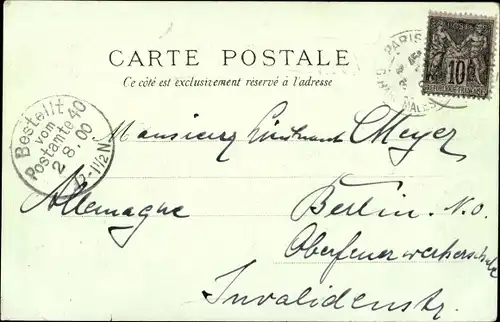 CARTE POSTALE
Ce côté est exclusivement réservé à l'adresse
PARIS
10
REPUBLIQUE FRANÇAISE
Bestellt
vom
Postamte 40
2.8.00
12-11/2N
Monsieur Lieutnant Meyer
Allemagne
Berlin. N.O.
Oberfeuerwerkerschule
Invalidenstr.